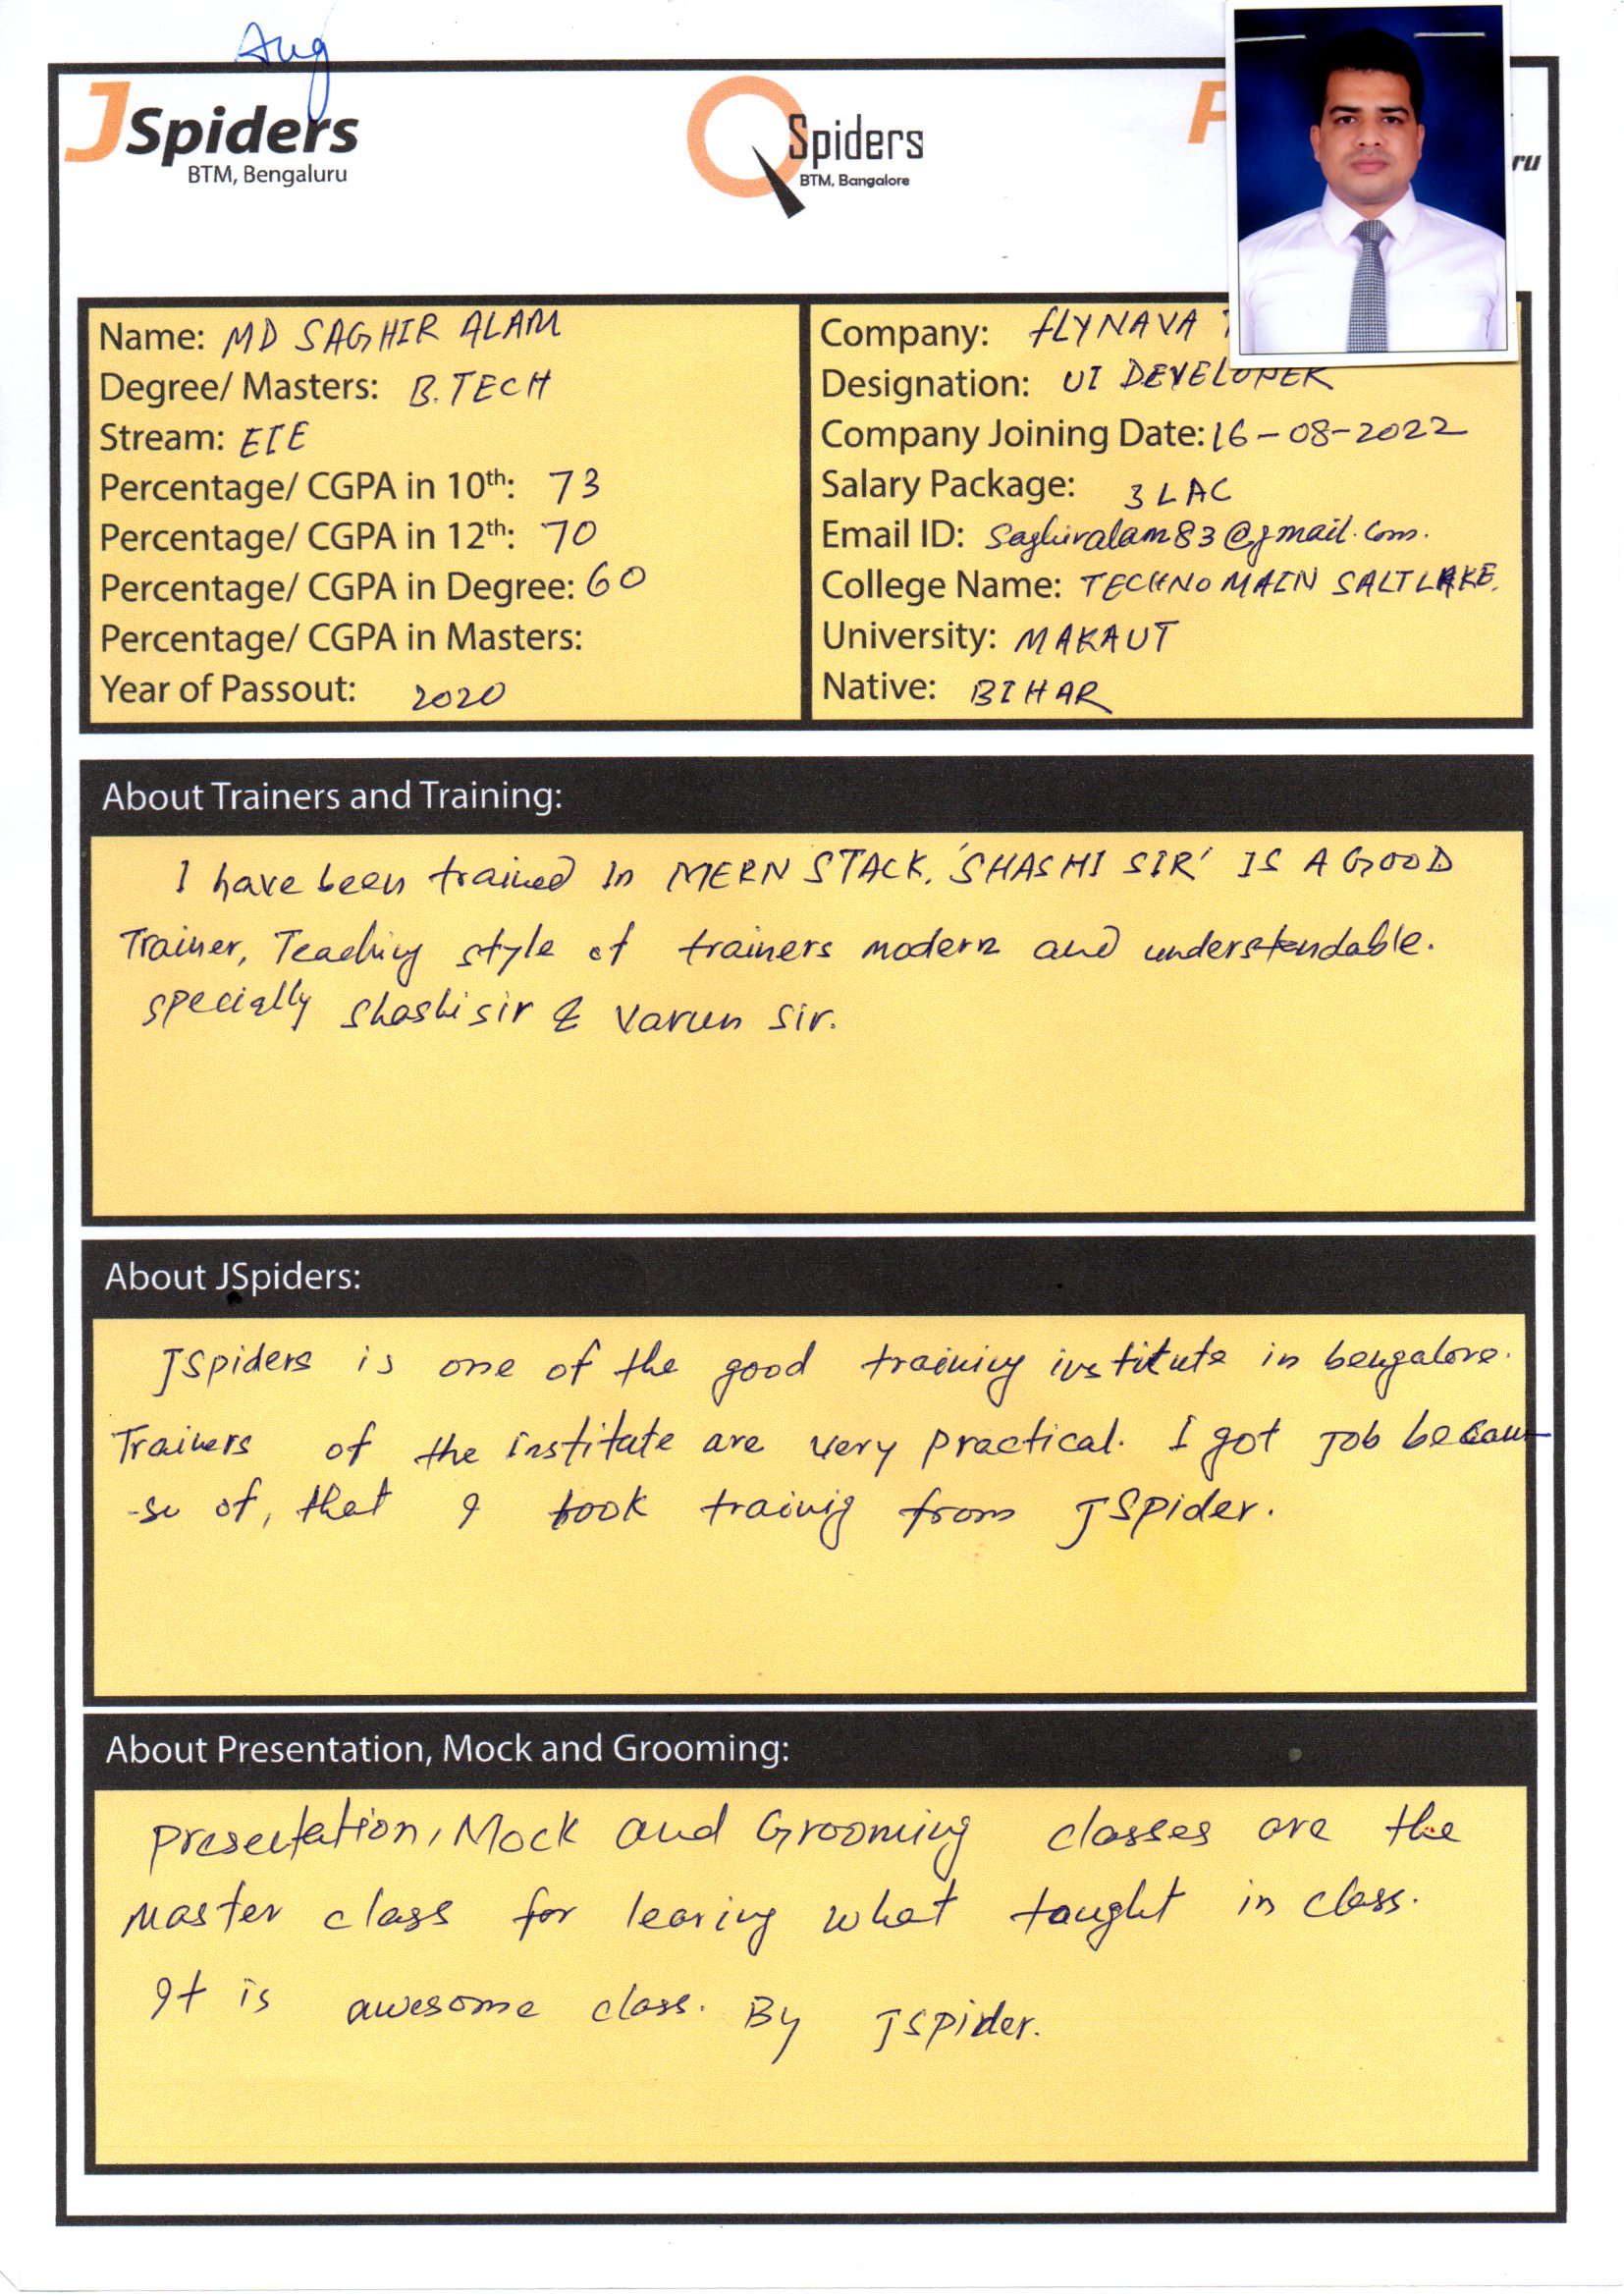 Aug
JSpiders
BTM, Bengaluru
QSpiders
BTM, Bangalore
P
ru
Name: MD SAGHIR ALAM
Degree/ Masters: B.TECH
Stream: EIE
Percentage/ CGPA in 10th: 73
Percentage/ CGPA in 12th: 70
Percentage/ CGPA in Degree: 60
Percentage/ CGPA in Masters:
Year of Passout: 2020
Company: fLYNAVA
Designation: UI DEVELOPER
Company Joining Date: 16-08-2022
Salary Package: 3 LAC
Email ID: Saghiralam83@gmail.com.
College Name: TECHNO MAIN SALTLAKE.
University: MAKAUT
Native: BIHAR
About Trainers and Training:
I have been trained In MERN STACK. 'SHASHI SIR' IS A GOOD
Trainer, Teaching style of trainers modern and understendable.
specially Shashi sir & Varun Sir.
About JSpiders:
JSpiders is one of the good training institute in bengalore.
Trainers of the institute are very practical. I got Job becau
-se of, that I took trainig from JSpider.
About Presentation, Mock and Grooming:
Presentation, Mock and Grooming classes are the
Master class for learing what taught in class.
It is awesome class. By JSpider.